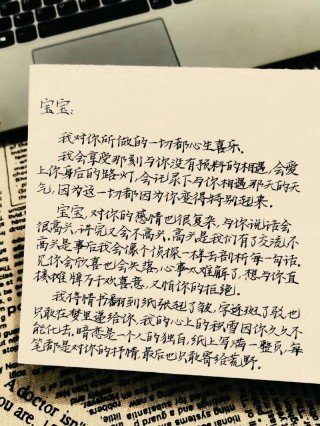 宝宝:
我对你所做的一切都心生喜乐.
我会享受那刻与你没有预料的相遇,会爱
上你身后的路灯,会记录下与你相遇那天的天
气,因为这一切都因为你变得特别起来.
宝宝,对你的感情也很复杂,与你说话会
很高兴,讲完又会不高兴.高兴是我们有了交流,不
高兴是事后我会像个侦探一样去剖析每一句话.
见你会欣喜也会失落,心事太难解了,想与你直
接摊牌万千欢喜意,又怕你的拒绝.
我将情书翻到纸张起了皱,字迹斑了驳也
只敢在梦里递给你,我的心上的积雪因你久久不
能化去.暗恋是一个人的独白,纸上写满一整页,每
笔都是对你的抒情,最后也只敢寄给荒野.
A doctor isn'